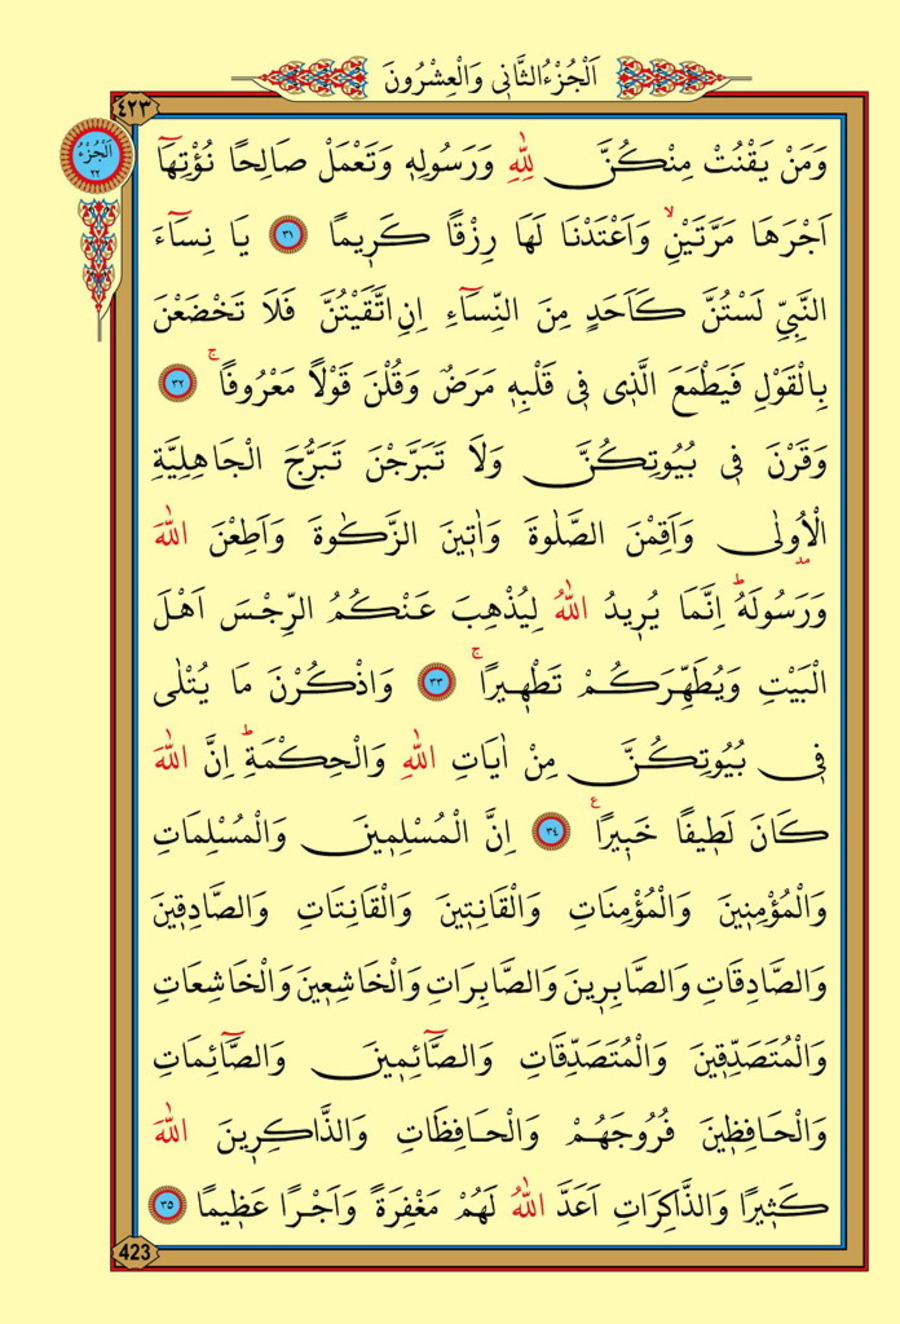 اَلْجُزْءُ الثَّانٖى وَالْعِشْرُونَ
٤٢٣
اَلْجُزْءُ
٢٢
وَمَنْ يَقْنُتْ مِنْكُنَّ لِلّٰهِ وَرَسُولِهٖ وَتَعْمَلْ صَالِحًا نُؤْتِهَٓا
اَجْرَهَا مَرَّتَيْنِۙ وَاَعْتَدْنَا لَهَا رِزْقًا كَرٖيمًا ﴿٣١﴾ يَا نِسَٓاءَ
النَّبِيِّ لَسْتُنَّ كَاَحَدٍ مِنَ النِّسَٓاءِ اِنِ اتَّقَيْتُنَّ فَلَا تَخْضَعْنَ
بِالْقَوْلِ فَيَطْمَعَ الَّذٖى فٖى قَلْبِهٖ مَرَضٌ وَقُلْنَ قَوْلًا مَعْرُوفًاۚ ﴿٣٢﴾
وَقَرْنَ فٖى بُيُوتِكُنَّ وَلَا تَبَرَّجْنَ تَبَرُّجَ الْجَاهِلِيَّةِ
الْاُولٰى وَاَقِمْنَ الصَّلٰوةَ وَاٰتٖينَ الزَّكٰوةَ وَاَطِعْنَ اللّٰهَ
وَرَسُولَهُؕ اِنَّمَا يُرٖيدُ اللّٰهُ لِيُذْهِبَ عَنْكُمُ الرِّجْسَ اَهْلَ
الْبَيْتِ وَيُطَهِّرَكُمْ تَطْهٖيرًاۚ ﴿٣٣﴾ وَاذْكُرْنَ مَا يُتْلٰى
فٖى بُيُوتِكُنَّ مِنْ اٰيَاتِ اللّٰهِ وَالْحِكْمَةِؕ اِنَّ اللّٰهَ
كَانَ لَطٖيفًا خَبٖيرًاࣖ ﴿٣٤﴾ اِنَّ الْمُسْلِمٖينَ وَالْمُسْلِمَاتِ
وَالْمُؤْمِنٖينَ وَالْمُؤْمِنَاتِ وَالْقَانِتٖينَ وَالْقَانِتَاتِ وَالصَّادِقٖينَ
وَالصَّادِقَاتِ وَالصَّابِرٖينَ وَالصَّابِرَاتِ وَالْخَاشِعٖينَ وَالْخَاشِعَاتِ
وَالْمُتَصَدِّقٖينَ وَالْمُتَصَدِّقَاتِ وَالصَّٓائِمٖينَ وَالصَّٓائِمَاتِ
وَالْحَافِظٖينَ فُرُوجَهُمْ وَالْحَافِظَاتِ وَالذَّاكِرٖينَ اللّٰهَ
كَثٖيرًا وَالذَّاكِرَاتِ اَعَدَّ اللّٰهُ لَهُمْ مَغْفِرَةً وَاَجْرًا عَظٖيمًا ﴿٣٥﴾
423